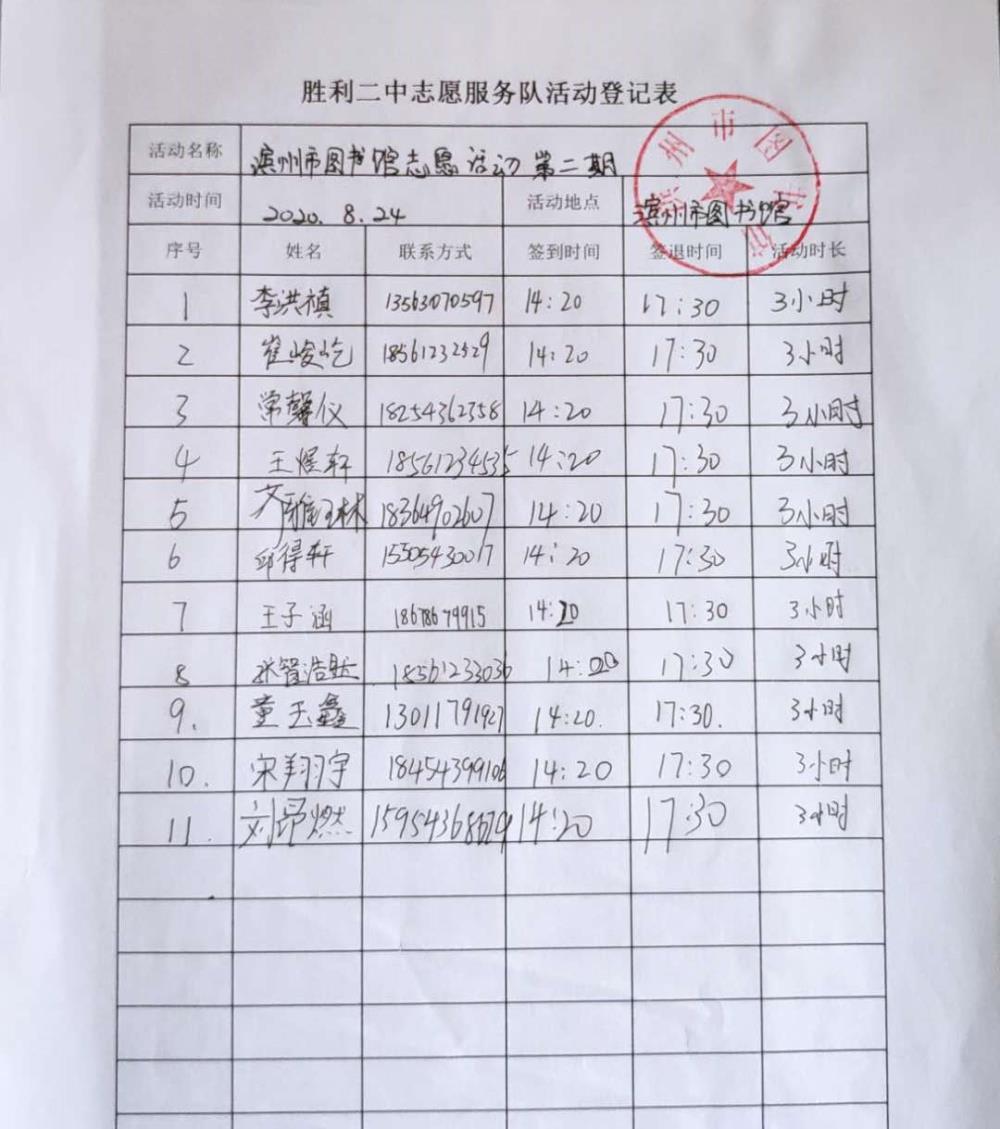 胜利二中志愿服务队活动登记表
活动名称 滨州市图书馆志愿活动 第二期
活动时间 2020.8.24 活动地点 滨州市图书馆
滨州市图书馆
序号 姓名 联系方式 签到时间 签退时间 活动时长
1 李洪禛 13563070597 14:20 17:30 3小时
2 崔峻屹 18561232529 14:20 17:30 3小时
3 常馨仪 18254362358 14:20 17:30 3小时
4 王煜轩 18561234535 14:20 17:30 3小时
5 齐雅琳 18364902607 14:20 17:30 3小时
6 邱得轩 15305430017 14:20 17:30 3小时
7 王子涵 18678679915 14:20 17:30 3小时
8 张智浩然 18561233036 14:20 17:30 3小时
9. 董玉鑫 13011791927 14:20. 17:30. 3小时
10. 宋翔宇 18454399106 14:20 17:30 3小时
11. 刘昂燃 14:20 17:30 3小时